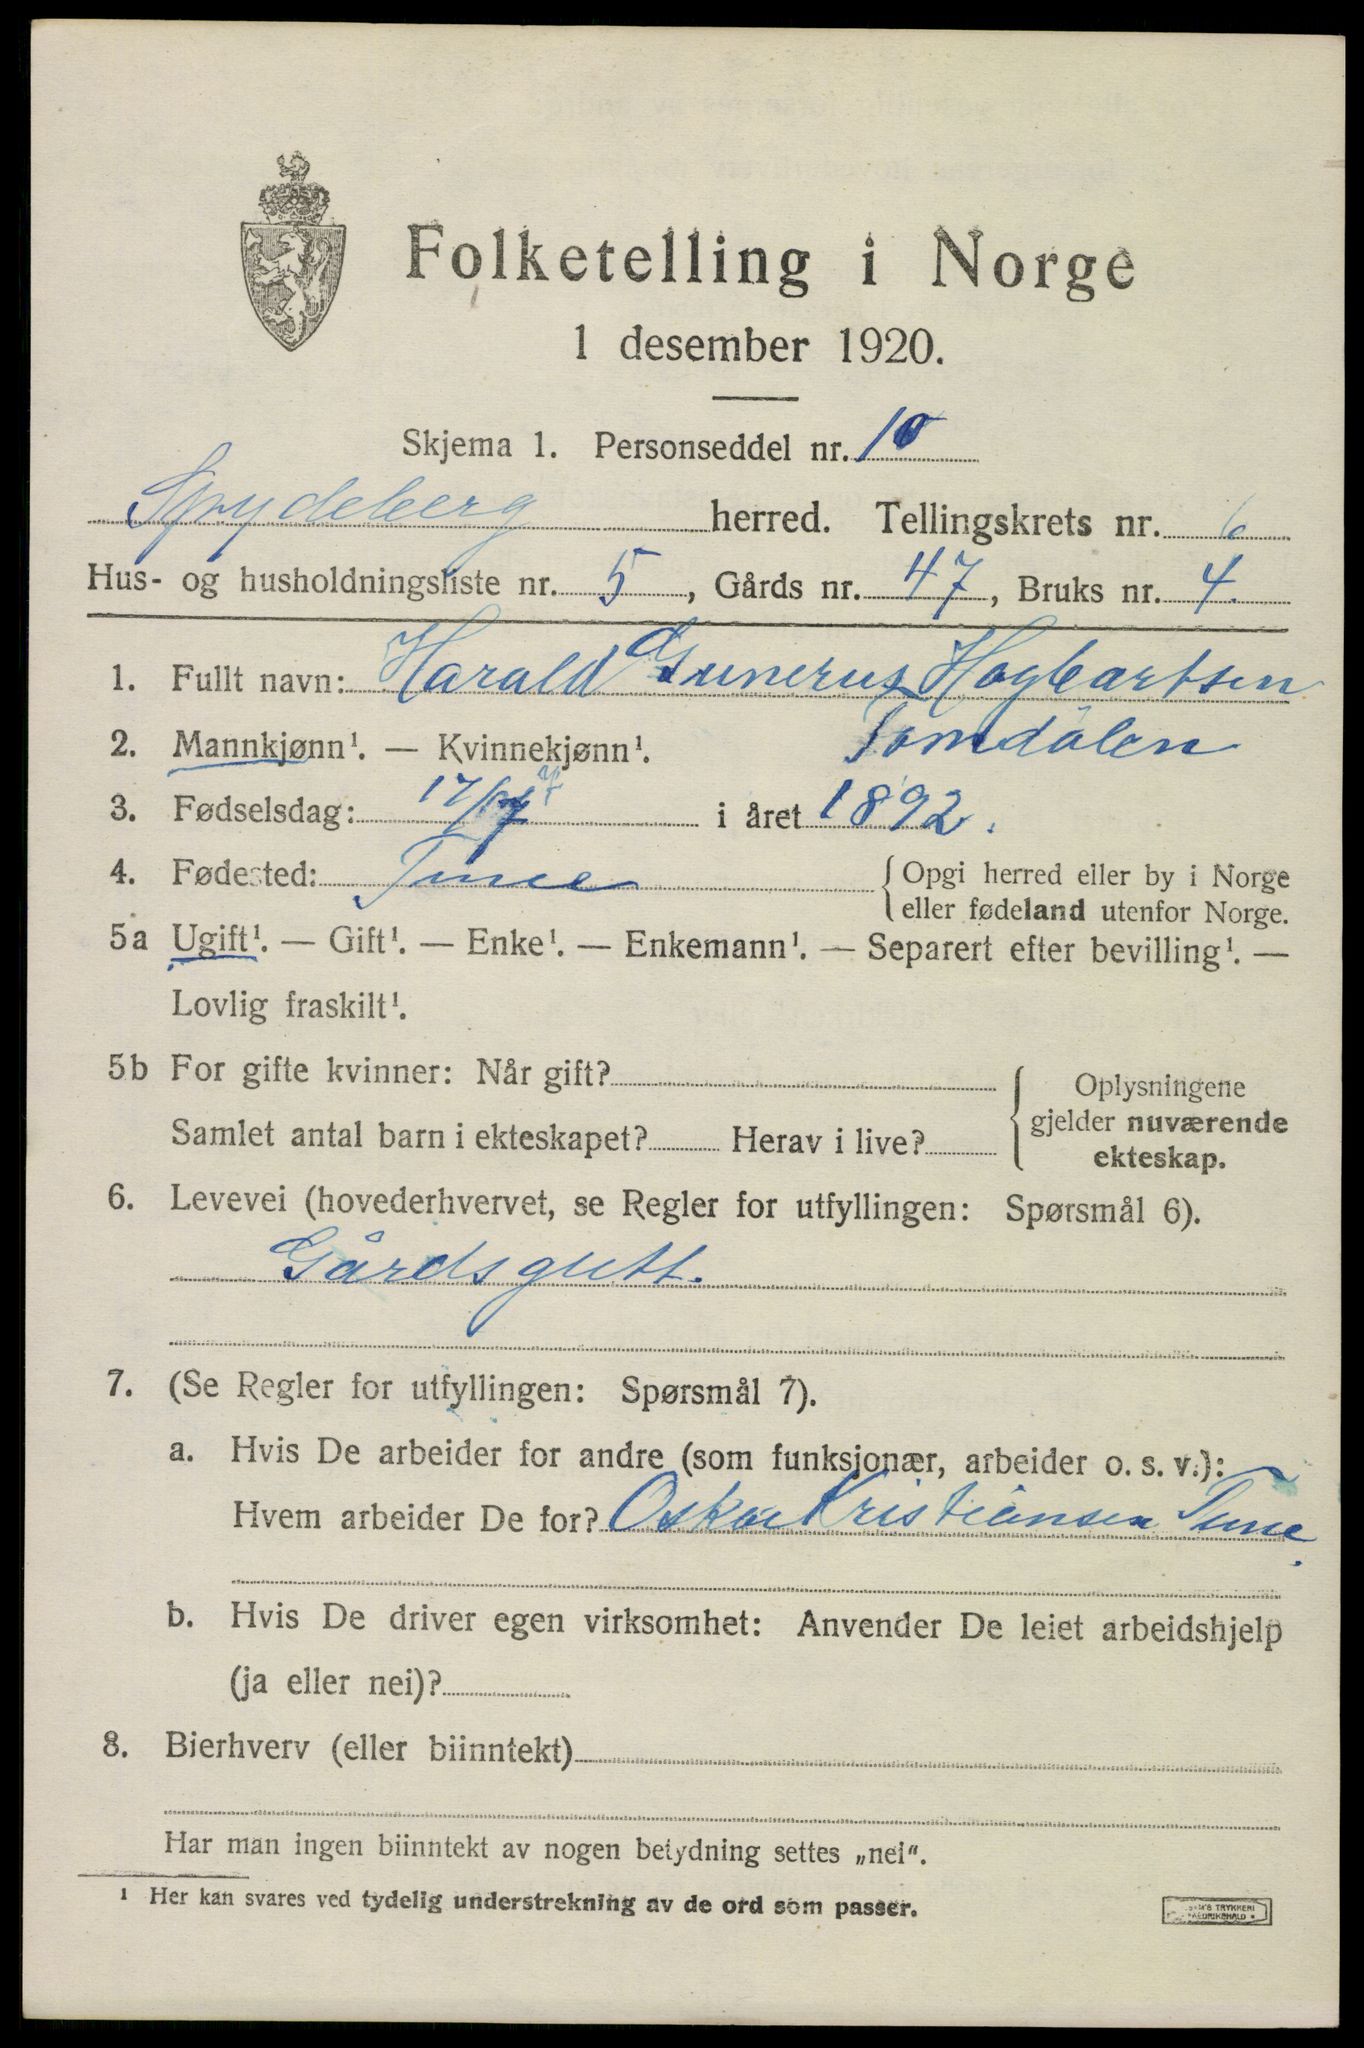 Folketelling i Norge
1 desember 1920.
Skjema 1. Personseddel nr. 10
Spydeberg herred. Tellingskrets nr. 6
Hus- og husholdningsliste nr. 5, Gårds nr. 47, Bruks nr. 4.
1. Fullt navn: Harald Gunerus Hagbartsen
Tomdalen
2. Mannkjønn¹. — Kvinnekjønn¹.
3. Fødselsdag: 17/7 i året 1892.
4. Fødested: Tune {Opgi herred eller by i Norge
eller fødeland utenfor Norge.
5a Ugift¹. — Gift¹. — Enke¹. — Enkemann¹. — Separert efter bevilling¹. —
Lovlig fraskilt¹.
5b For gifte kvinner: Når gift? {Oplysningene
gjelder nuværende
ekteskap.
Samlet antal barn i ekteskapet? Herav i live?
6. Levevei (hovederhvervet, se Regler for utfyllingen: Spørsmål 6).
Gårdsgutt.
7. (Se Regler for utfyllingen: Spørsmål 7).
a. Hvis De arbeider for andre (som funksjonær, arbeider o. s. v.):
Hvem arbeider De for? Oskar Kristiansen Tune.
b. Hvis De driver egen virksomhet: Anvender De leiet arbeidshjelp
(ja eller nei)?
8. Bierhverv (eller biinntekt)
Har man ingen biinntekt av nogen betydning settes „nei".
¹ Her kan svares ved tydelig understrekning av de ord som passer.
TRYKKERI